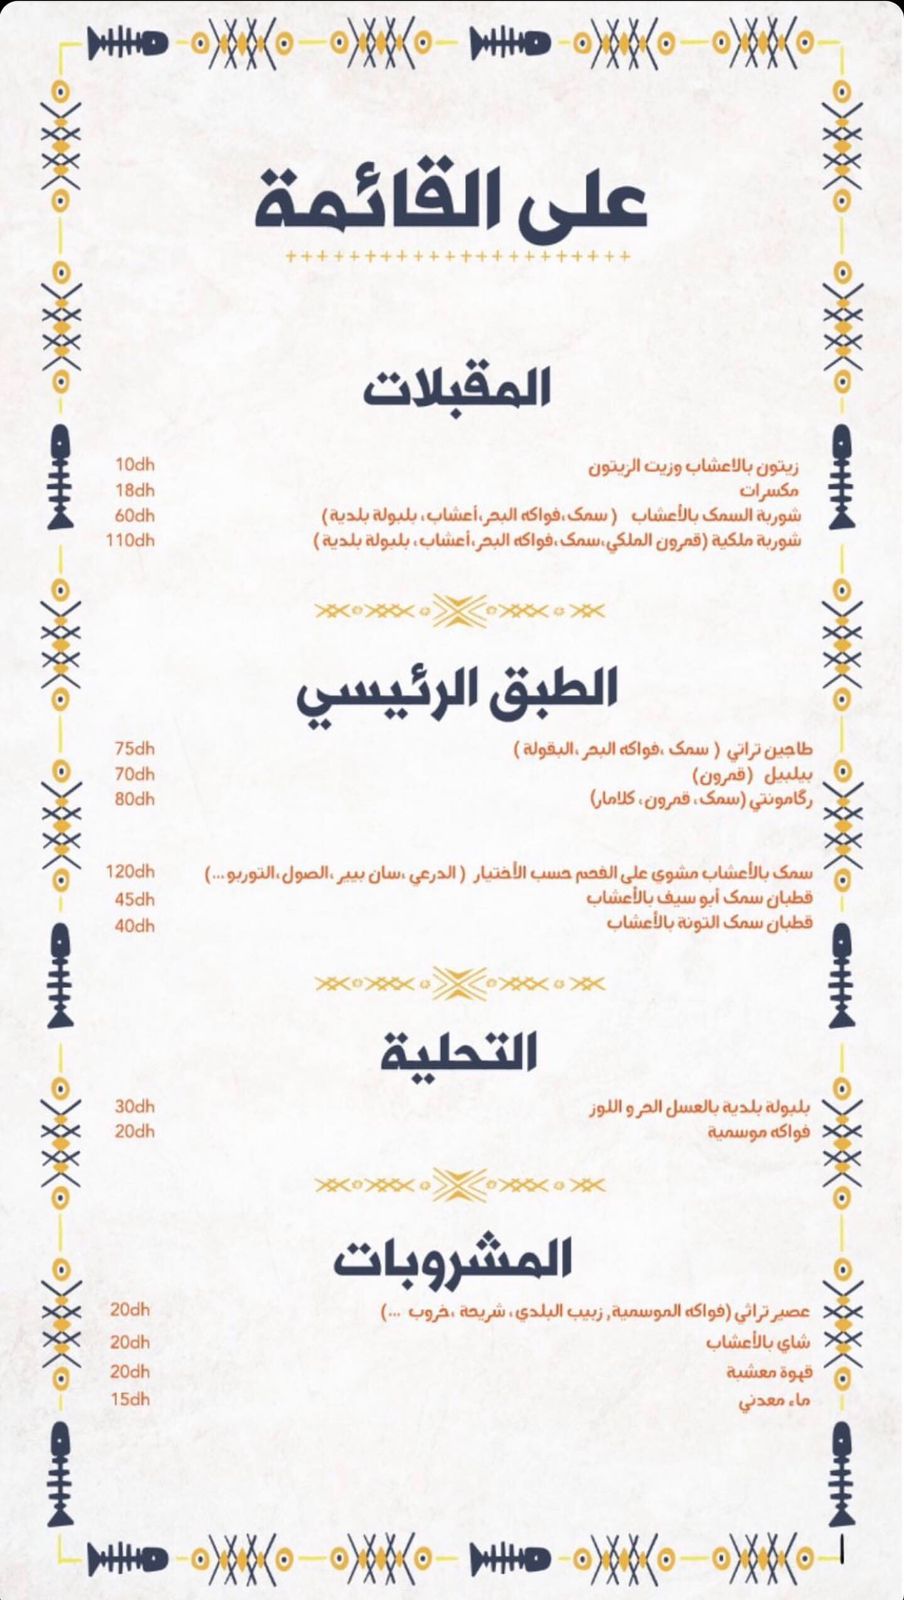 على القائمة
المقبلات
زيتون بالاعشاب وزيت الزيتون 10dh
مكسرات 18dh
شوربة السمك بالأعشاب ( سمك،فواكه البحر،أعشاب، بلبولة بلدية ) 60dh
شوربة ملكية (قمرون الملكي،سمك،فواكه البحر،أعشاب، بلبولة بلدية ) 110dh
الطبق الرئيسي
طاجين تراتي ( سمك ،فواكه البحر ،البقولة ) 75dh
بيلبيل (قمرون) 70dh
رگامونتي (سمك، قمرون، كلامار) 80dh
سمك بالأعشاب مشوي على الفحم حسب الأختيار ( الدرعي ،سان بيير ،الصول،التوربو...) 120dh
قطبان سمك أبو سيف بالأعشاب 45dh
قطبان سمك التونة بالأعشاب 40dh
التحلية
بلبولة بلدية بالعسل الحر و اللوز 30dh
فواكه موسمية 20dh
المشروبات
عصير تراثي (فواكه الموسمية, زبيب البلدي، شريحة ،خروب ...) 20dh
شاي بالأعشاب 20dh
قهوة معشبة 20dh
ماء معدني 15dh